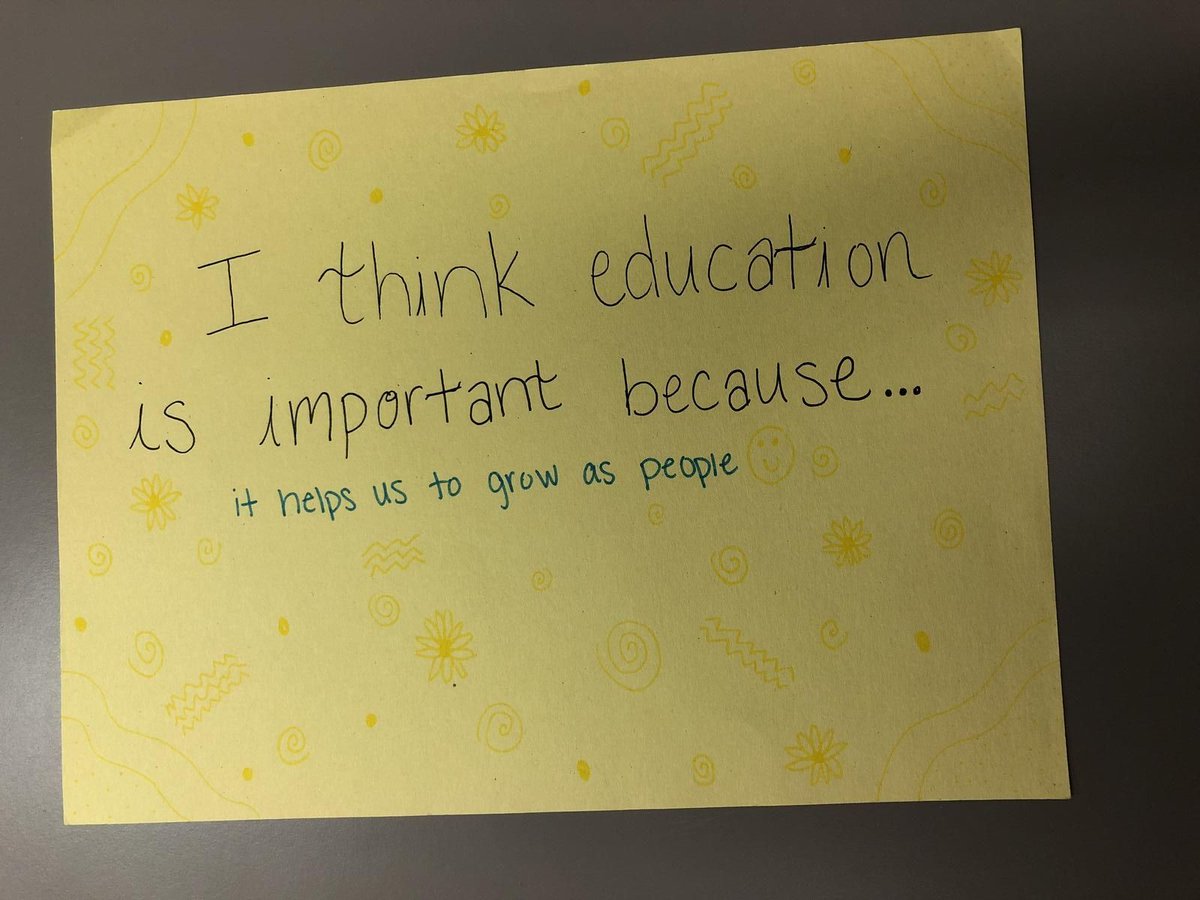 I think education
is important because...
it helps us to grow as people